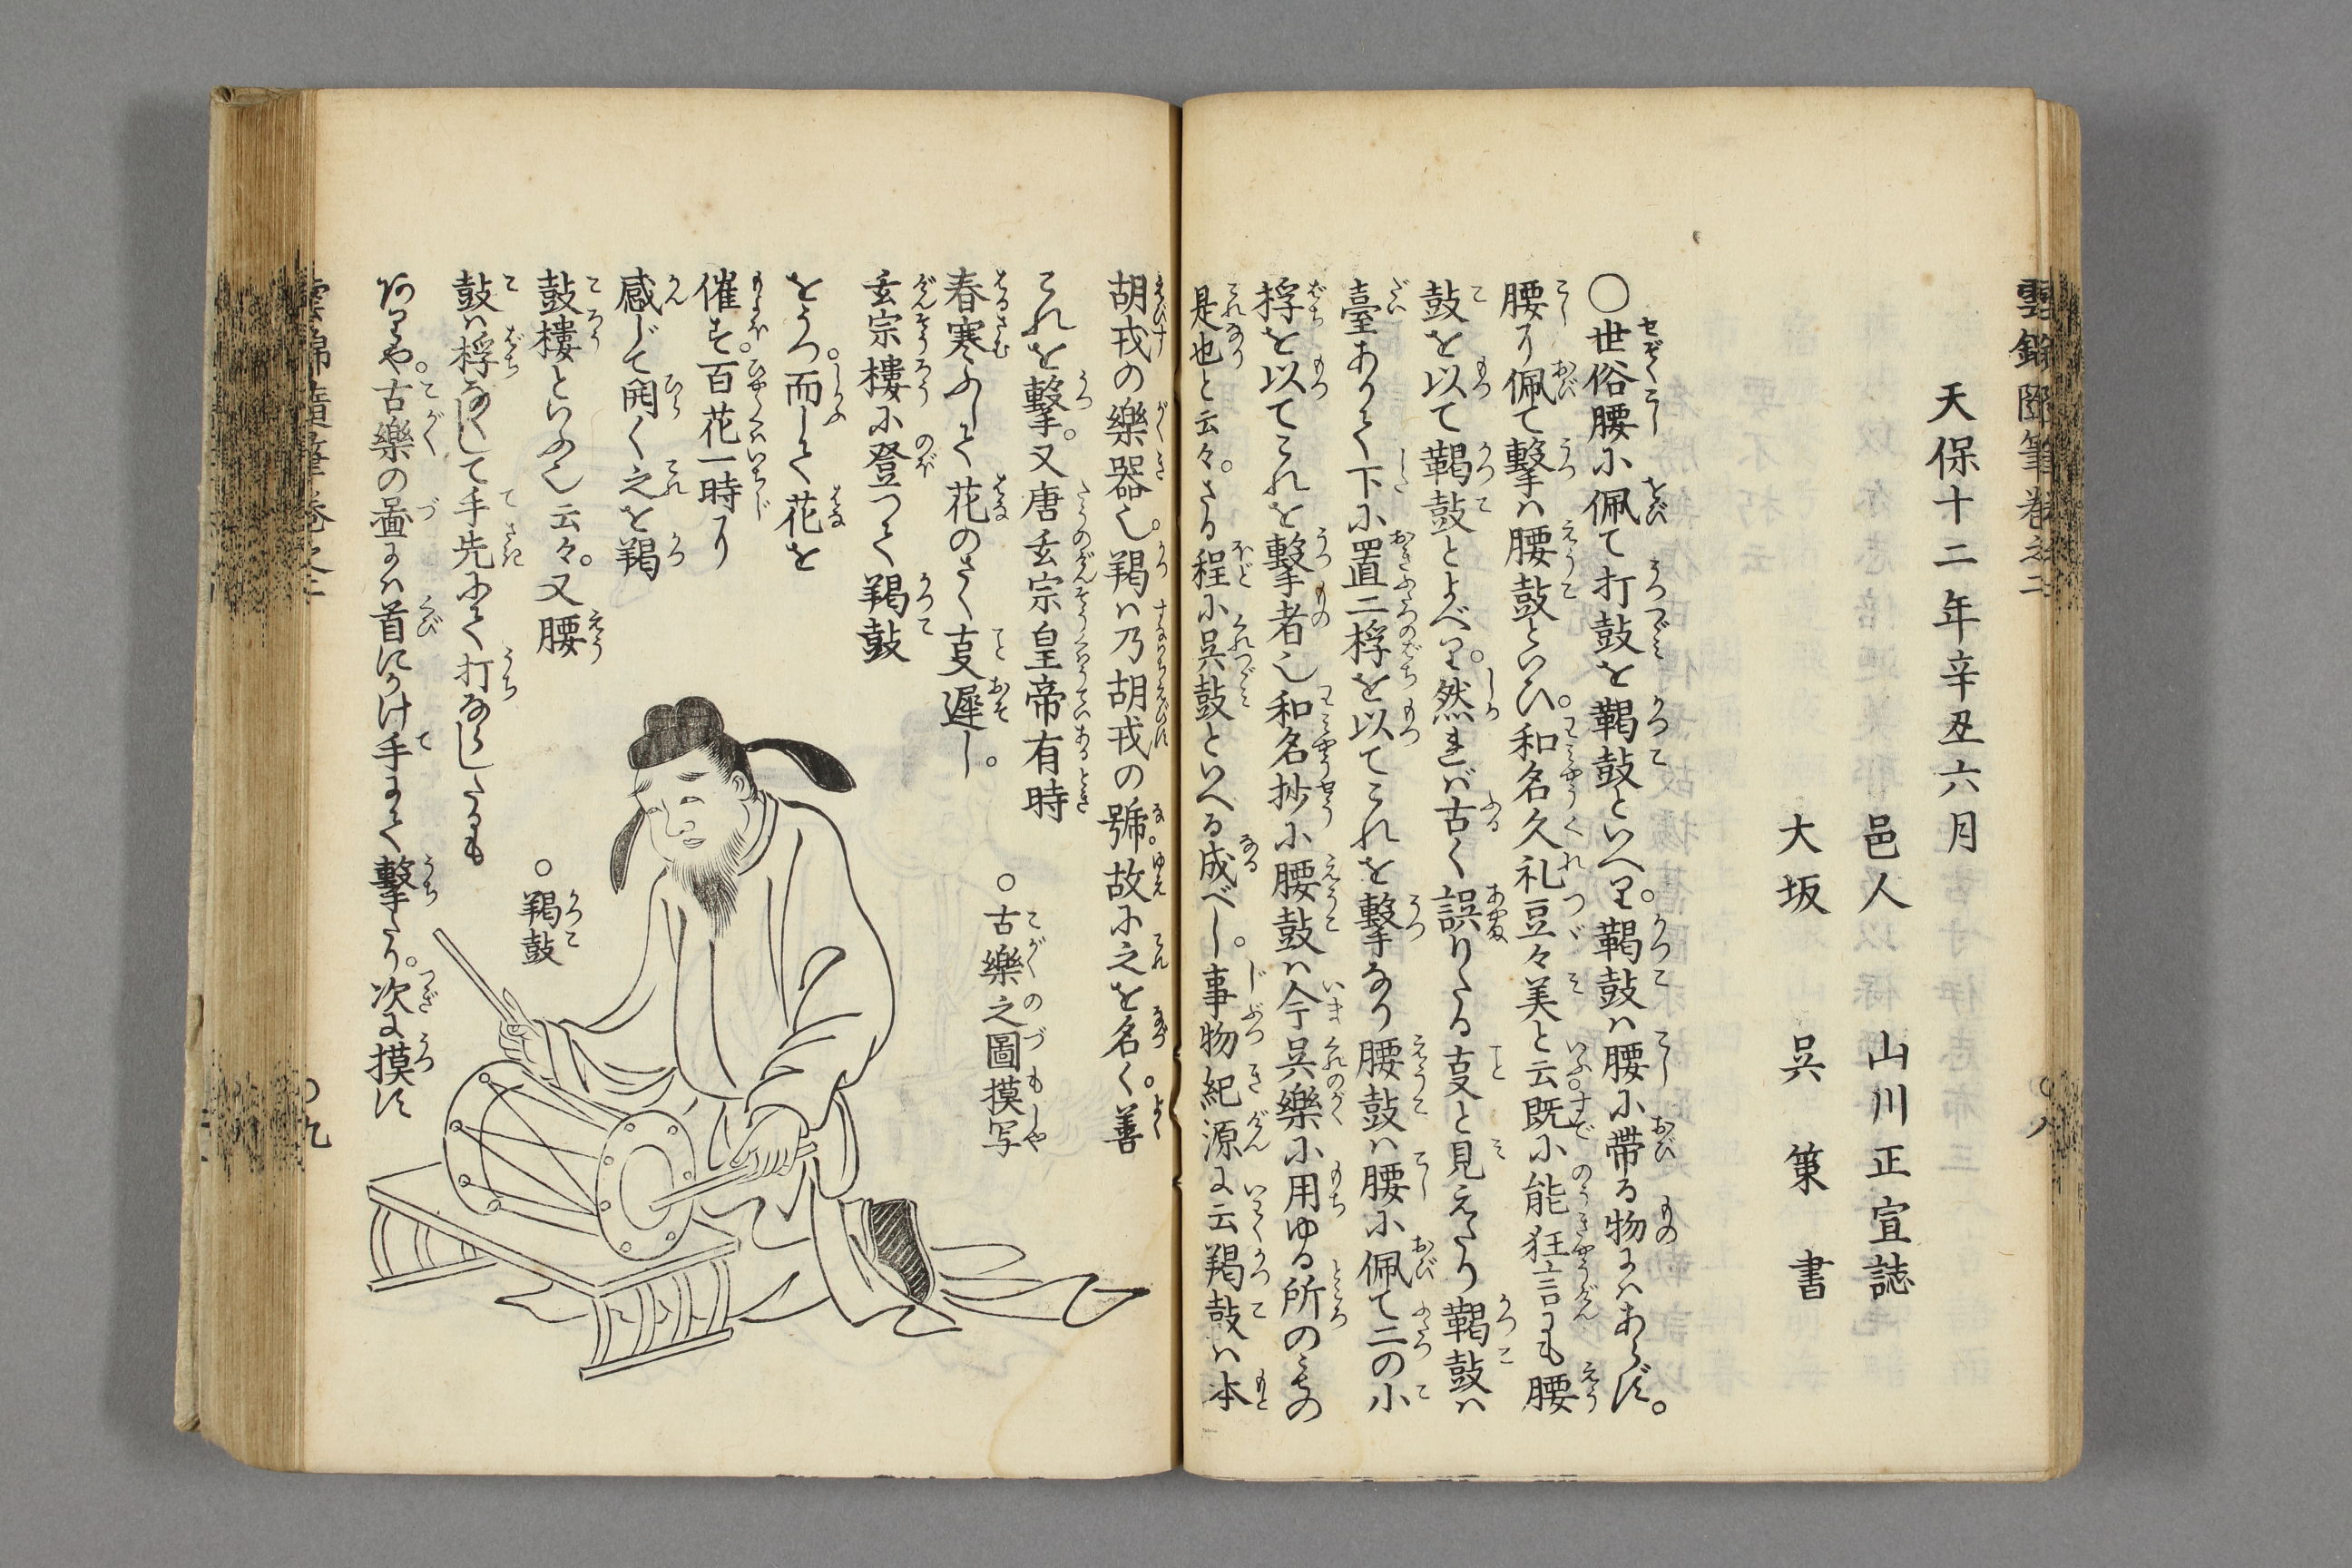 天保十二年辛丑六月
邑人 山川正宣誌
大坂 呉策書
○世俗腰に佩て打鼓を鞨鼓といへり。鞨鼓ハ腰に帯る物にハあらず。
腰ニ佩て撃ハ腰鼓といひ。和名久礼豆々美と云既に能狂言にも腰
鼓を以て鞨鼓とよべり。然れバ古く誤りたる叓と見えたり鞨鼓ハ
臺ありて下に置二桴を以てこれを撃なり腰鼓ハ腰に佩て二の小
桴を以てこれを撃者也和名抄に腰鼓ハ今呉樂に用ゆる所のもの
是也と云々。さる程に呉鼓といへる成べし。事物紀源に云羯鼓ハ本
胡戎の樂器也。羯ハ乃胡戎の號。故に之を名く。善
これを撃。又唐玄宗皇帝有時
春寒ふして花のさく叓遲し。
玄宗樓に登つて羯鼓
をうつ。而して花を
催す。百花一時ニ
感じて開く之を羯
鼓樓といふ也云々。又腰
鼓ハ桴なくして手先にて打なしたるも
あり。古樂の圖にハ首にかけ手にて撃たり。次に摸す
○古樂之圖摸写
○羯鼓
雲錦随筆巻之二
○八
○九